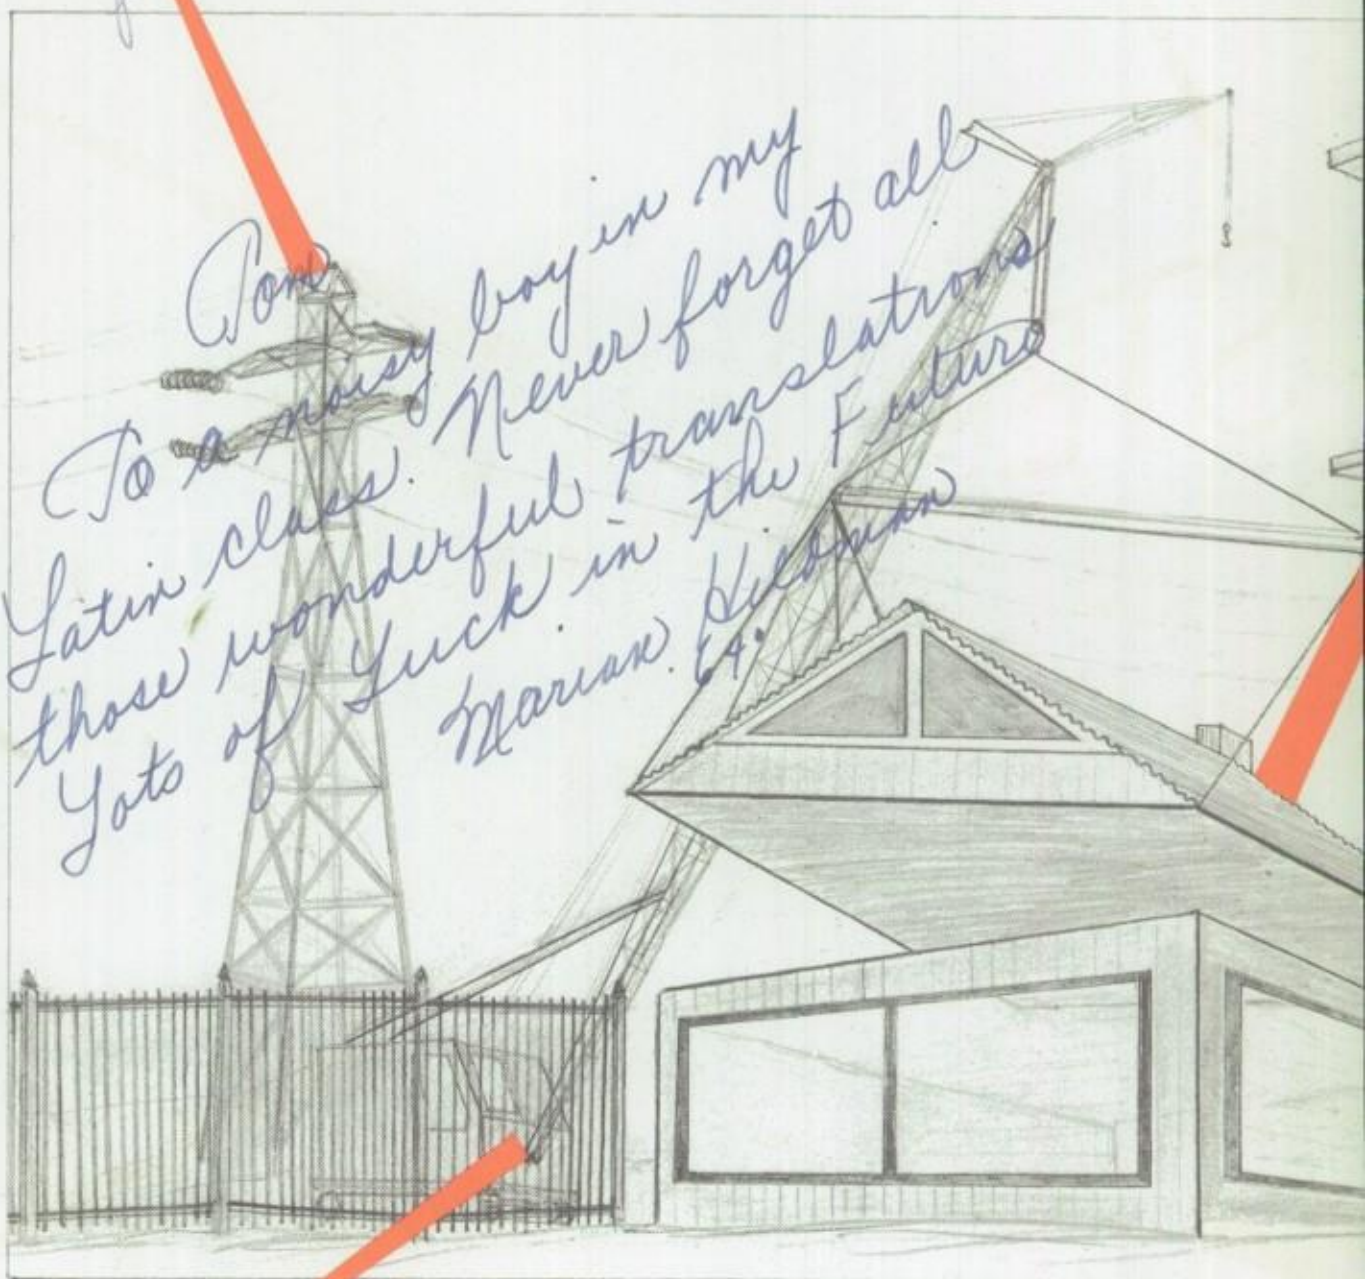 Tom
To a noisy boy in my
Latin class. Never forget all
those wonderful translations
Lots of Luck in the Future
Marian
64.